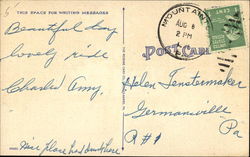 THIS SPACE FOR WRITING MESSAGES
POST CARD
MOUNTAIN
AUG 8
2 PM
Beautiful day
lovely ride
Charles Amy,
Nice place had lunch here
Helen Fenstermaker
Germansville
R#1 Pa